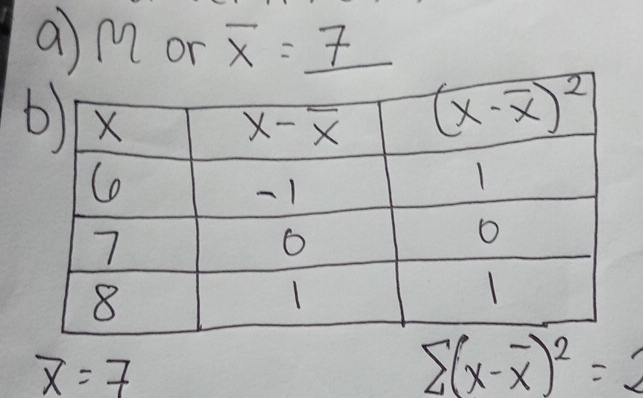 a) M or x̄ = 7
b)
x x - x̄ (x - x̄)²
6 -1 1
7 0 0
8 1 1
x̄ = 7 Σ(x - x̄)² = 2